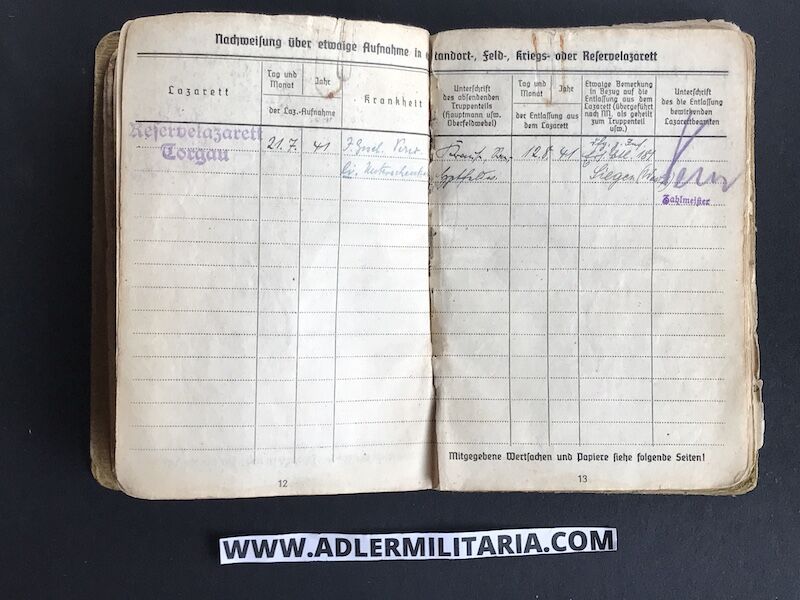 Nachweisung über etwaige Aufnahme in Standort-, Feld-, Kriegs- oder Reservelazarett
Lazarett
Tag und Monat
Jahr
der Laz.-Aufnahme
Krankheit
Unterschrift
des absendenden
Truppenteils
(Hauptmann usw.
Oberfeldwebel)
Tag und Monat
Jahr
der Entlassung aus
dem Lazarett
Etwaige Bemerkung
in Bezug auf die
Entlassung aus dem
Lazarett (übergeführt
nach NN, als geheilt
zum Truppenteil
usw.)
Unterschrift
des die Entlassung
bewirkenden
Lazarettbeamten
Reservelazarett
Torgau
21.7. 41
12.8 41
Siegen
Zahlmeister
Mitgegebene Wertsachen und Papiere siehe folgende Seiten!
12
13
WWW.ADLERMILITARIA.COM